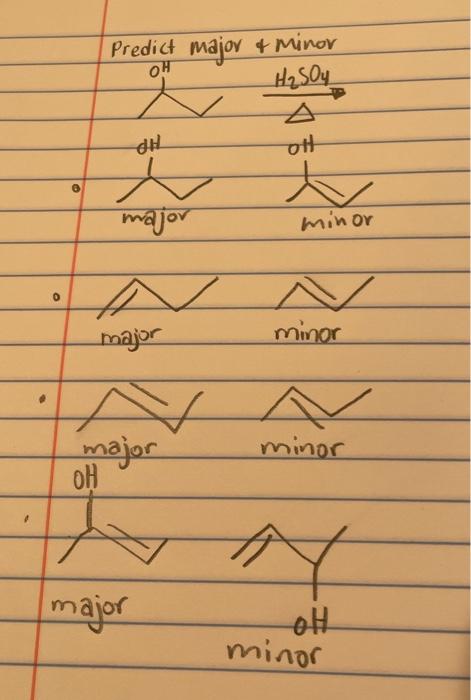 Predict major & minor
OH
H2SO4
△
OH OH
major minor
major minor
major minor
OH
major
OH
minor